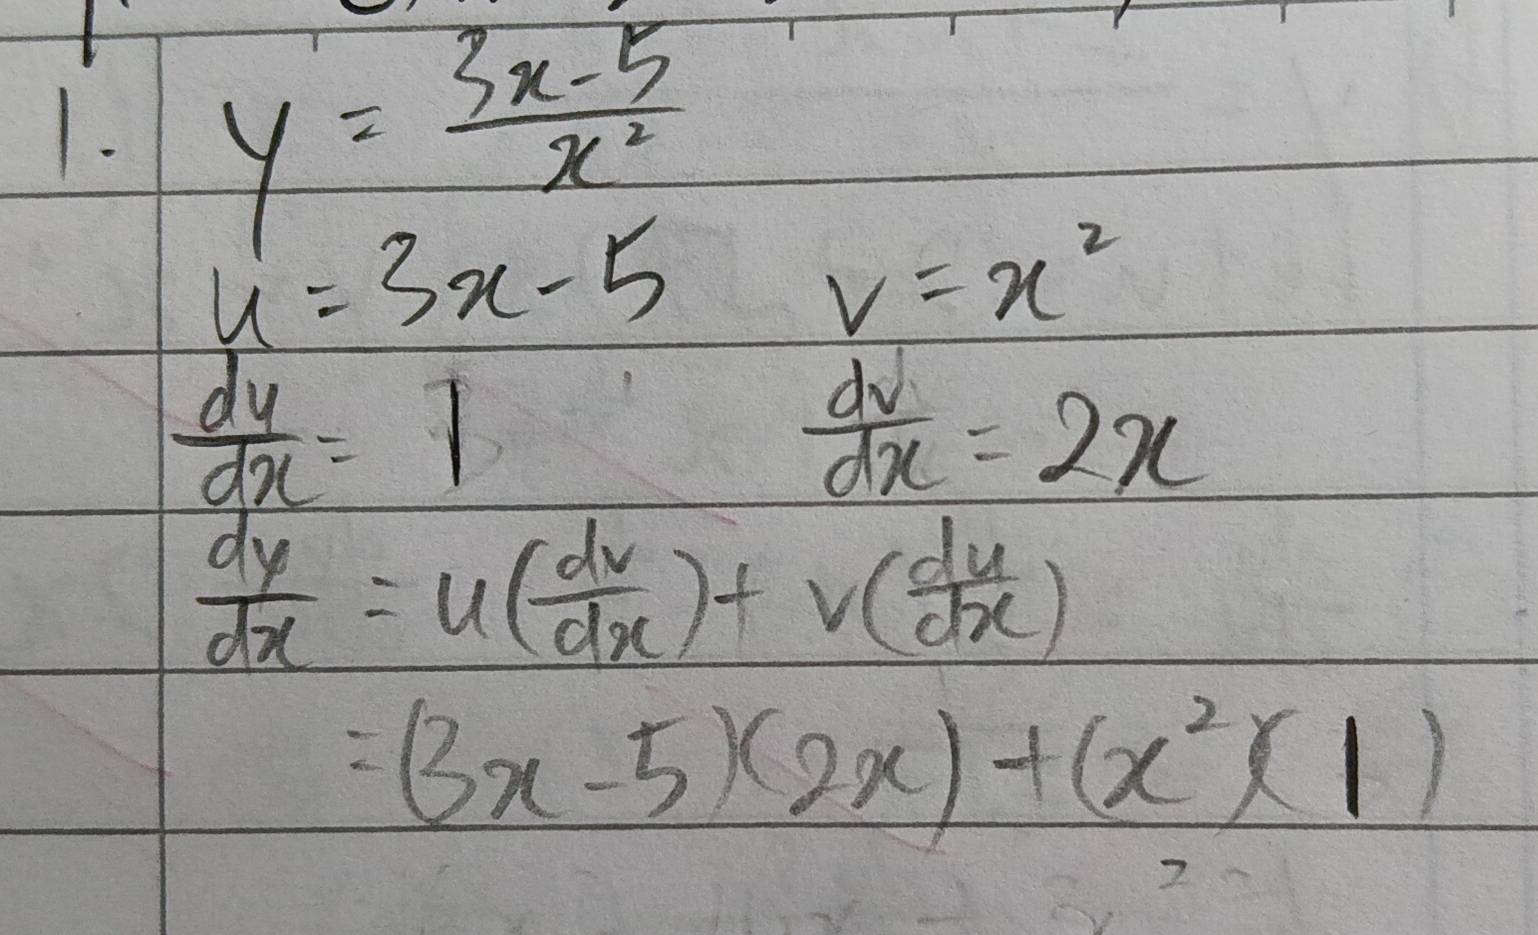 1. y = (3x-5)/x²
u = 3x-5 v = x²
du/dx = 1 dv/dx = 2x
dy/dx = u(dv/dx) + v(du/dx)
=(3x-5)(2x)+(x²)(1)